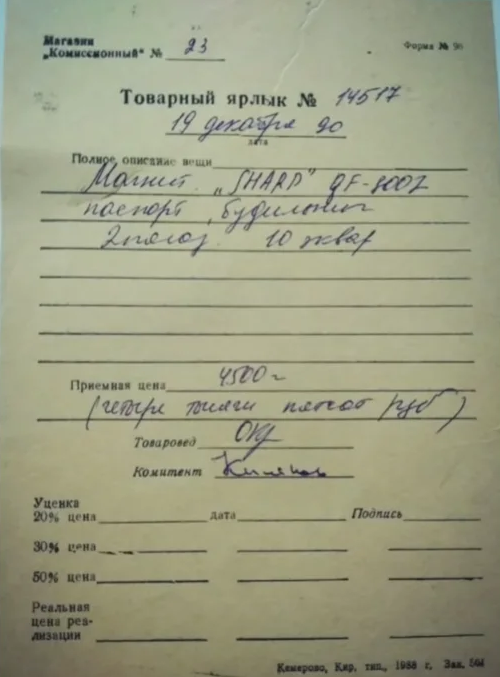 Магазин
„Комиссионный“ № 23
Форма №
Товарный ярлык № 14517
19 декабря 90
дата
Полное описание вещи
Магнит. „SHARP”
паспорт, будильник
10 эквар
Приемная цена 4500-
(четыре тысячи пятьсот руб)
Товаровед
Комитент
Уценка
20% цена дата Подпись
30% цена
50% цена
Реальная
цена реа-
лизации
Кемерово, Кир. тип., 1988 г. Зак.